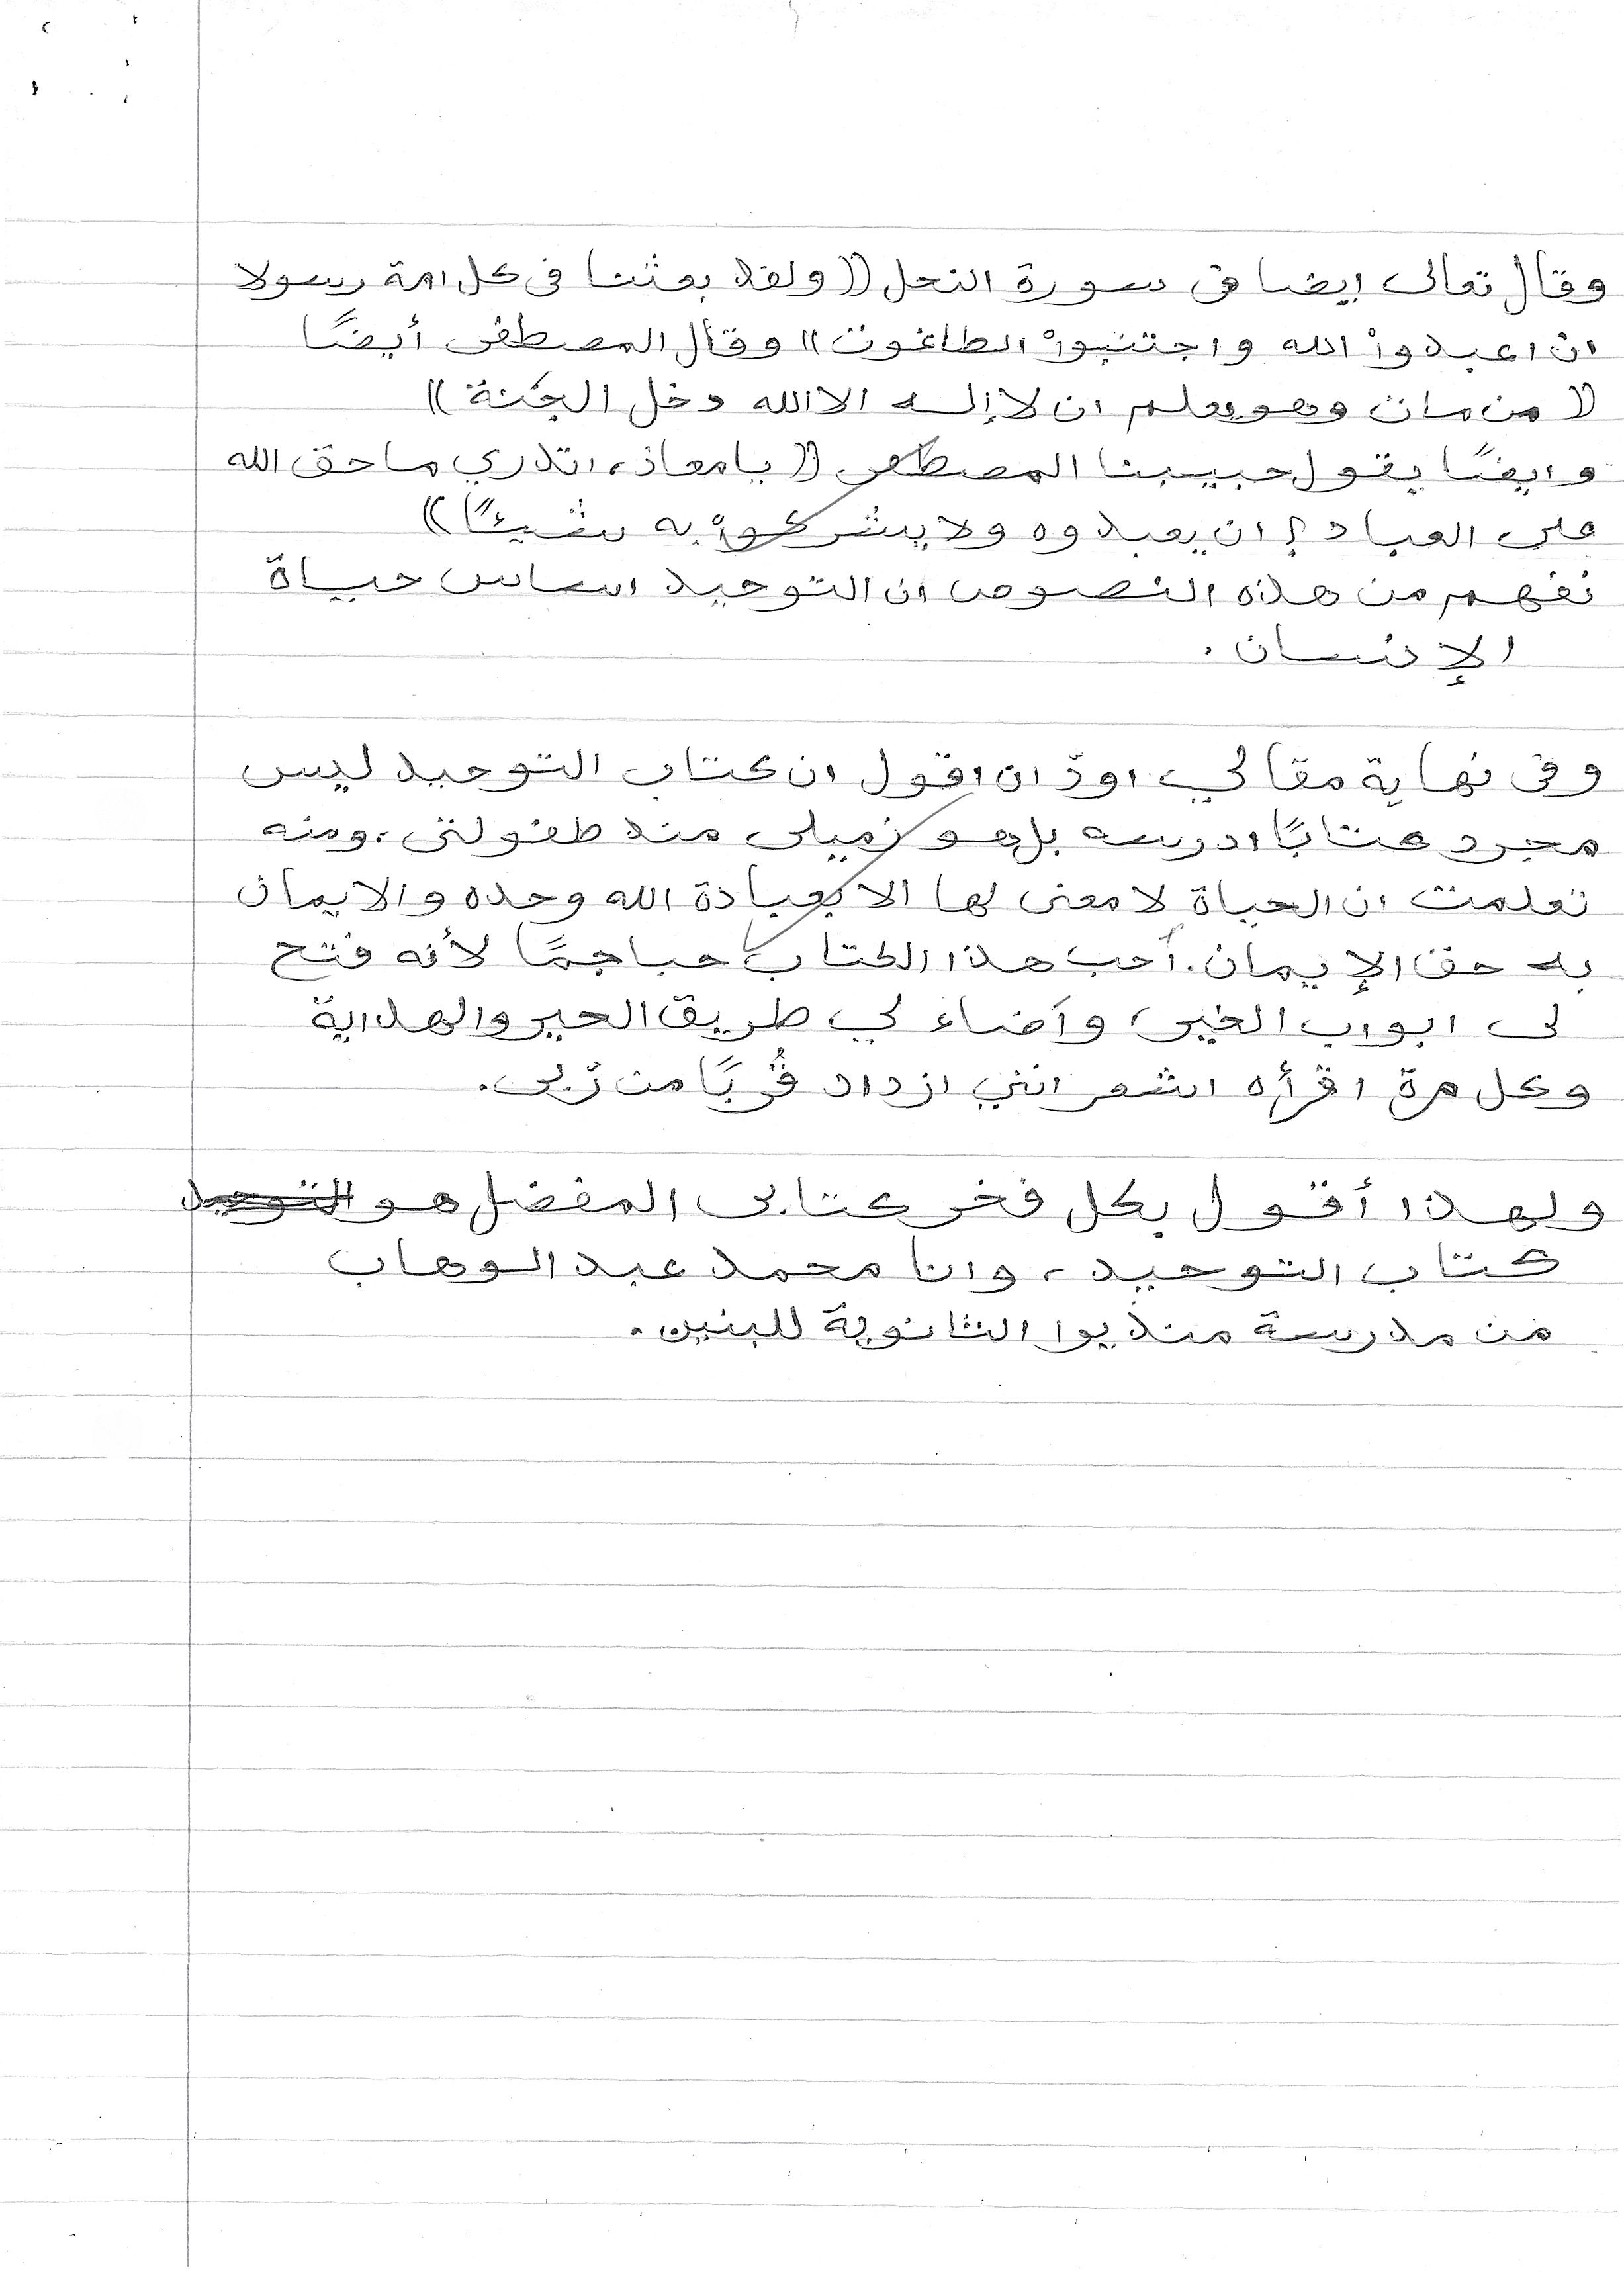 وقال تعالى ايضا في سورة النحل ((ولقد بعثنا في كل امة رسولا
ان اعبدوا الله واجتنبوا الطاغوت)) وقال المصطفى أيضًا
((من مات وهو يعلم ان لا إله الا الله دخل الجنة))
وايضًا يقول حبيبنا المصطفى ((يا معاذ، اتدري ما حق الله
على العباد؟ ان يعبدوه ولا يشركوا به شيئًا))
نفهم من هذه النصوص ان التوحيد اساس حياة
الإنسان.
وفى نهاية مقالي اودّ ان اقول ان كتاب التوحيد ليس
مجرد كتابًا ادرسه بل هو زميلى منذ طفولتى، ومنه
تعلمت ان الحياة لا معنى لها الا بعبادة الله وحده والايمان
به حق الإيمان. أحب هذا الكتاب حبا جمًا لأنه فتح
لى ابواب الخير، وأضاء لي طريق الخير والهداية
وكل مرة اقرأه اشعر انني ازداد قُربًا من رّبى.
ولهذا أقول بكل فخر كتابى المفضل هو التوحيد
كتاب التوحيد، وانا محمد عبد الوهاب
من مدرسة منديوا الثانوية للبنين.